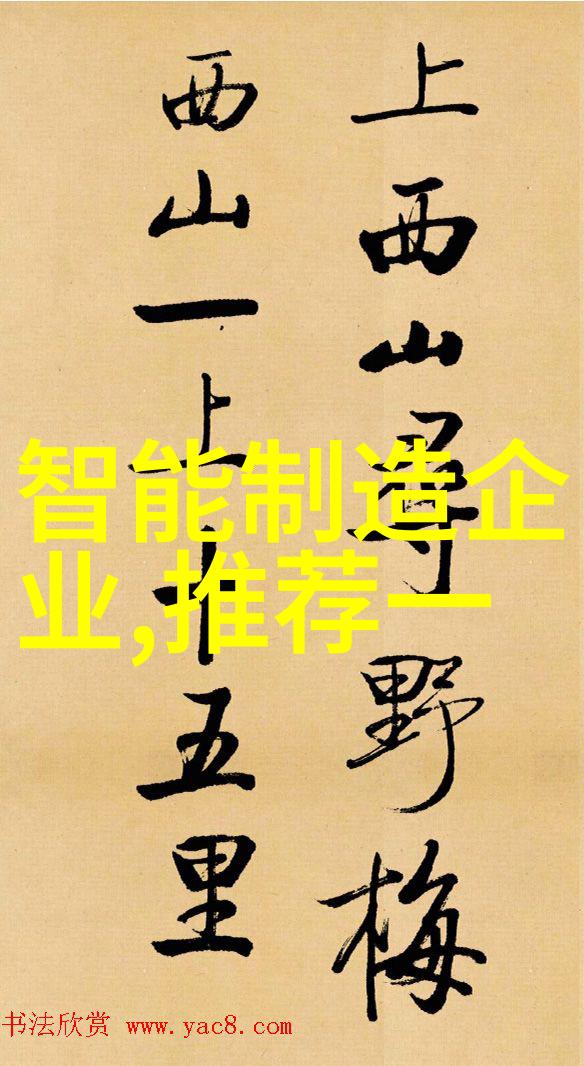 上西山尋野梅
西山一上十五里
智能制造企
业,推荐一
书法欣赏 www.yac8.com